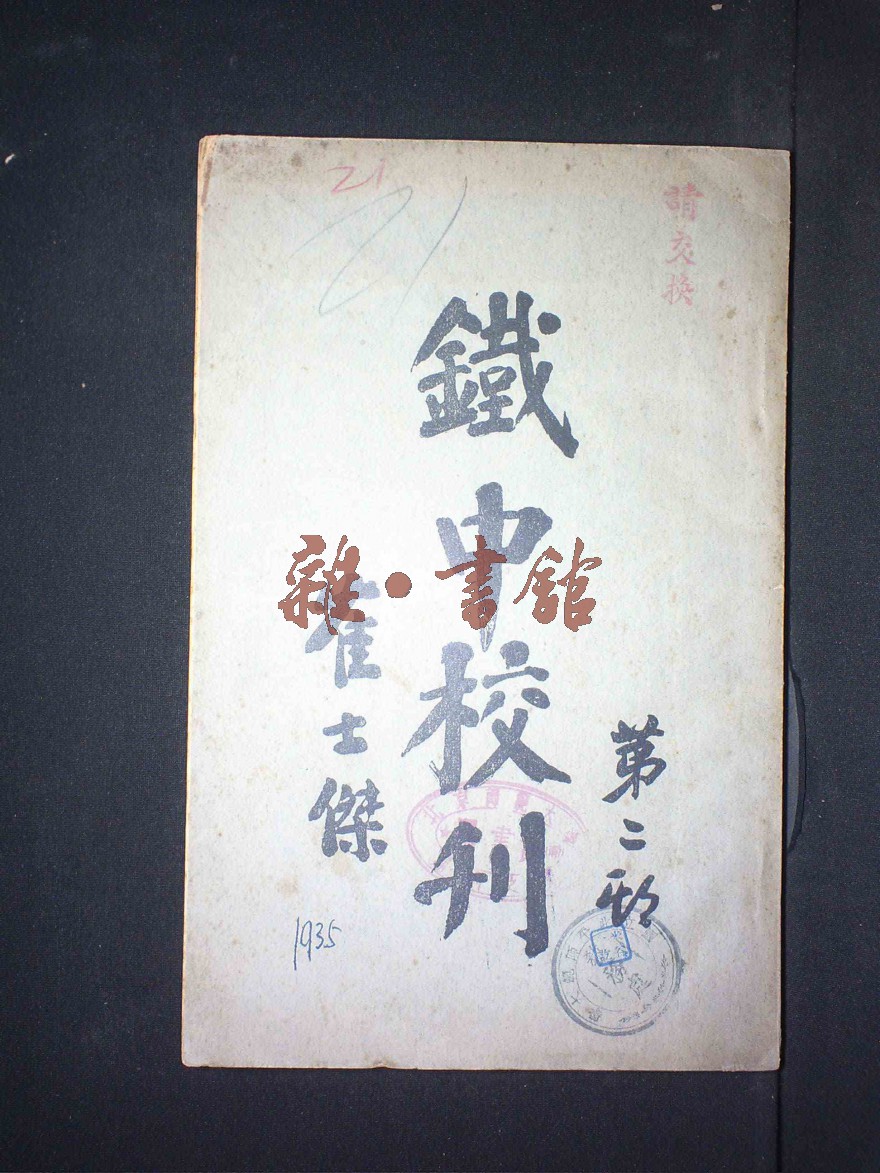 請交換
21
21
鐵中校刊
苐二期
崔士傑
1935
雜·書館